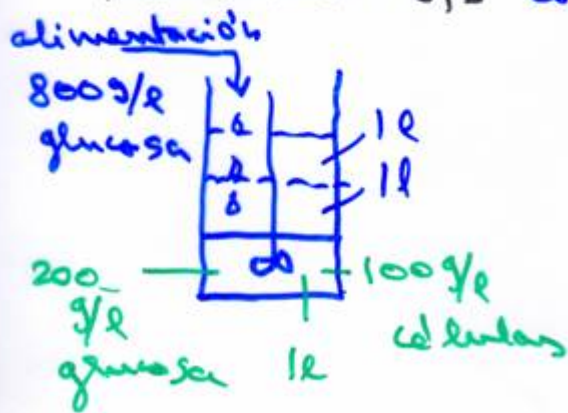 alimentación
800 g/l
glucosa
1 l
1 l
200
g/l
glucosa
1 l
100 g/l
células